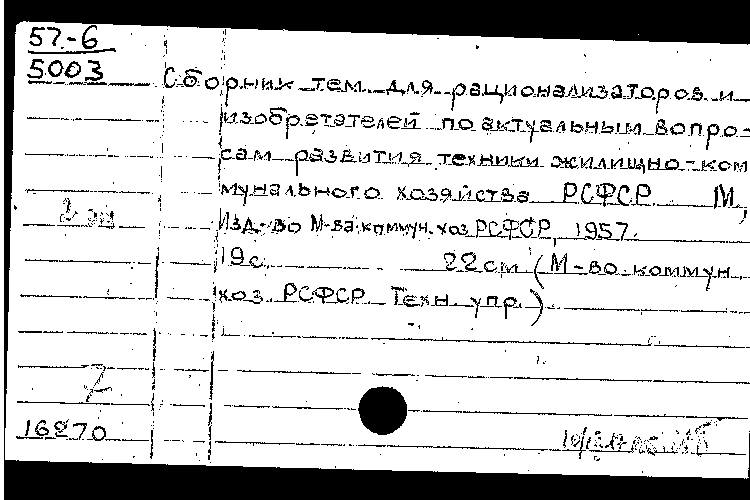 57-6
5003
Сборник тем для рационализаторов и
изобретателей по актуальным вопро-
сам развития техники жилищно-ком
мунального хозяйства РСФСР М,
2 эк
Изд-во М-ва коммун. хоз РСФСР, 1957.
19с. 22см (М-во коммун
хоз. РСФСР Техн. упр.)
7
16870